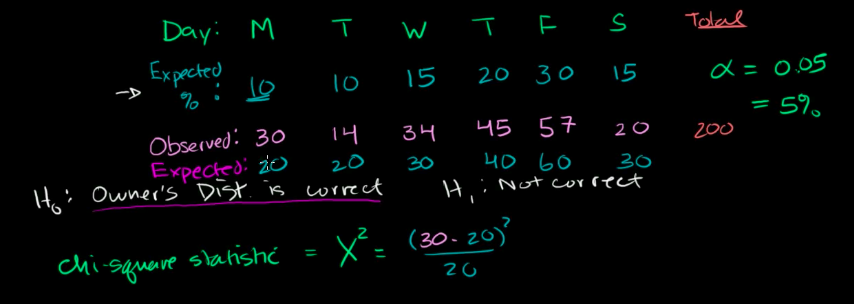 Day: M T W T F S Total
Expected %: 10 10 15 20 30 15 α = 0.05
= 5%
Observed: 30 14 34 45 57 20 200
Expected: 20 20 30 40 60 30
H₀: Owner's Dist. is correct H₁: Not correct
chi-square statistic = X² = (30 - 20)² / 20